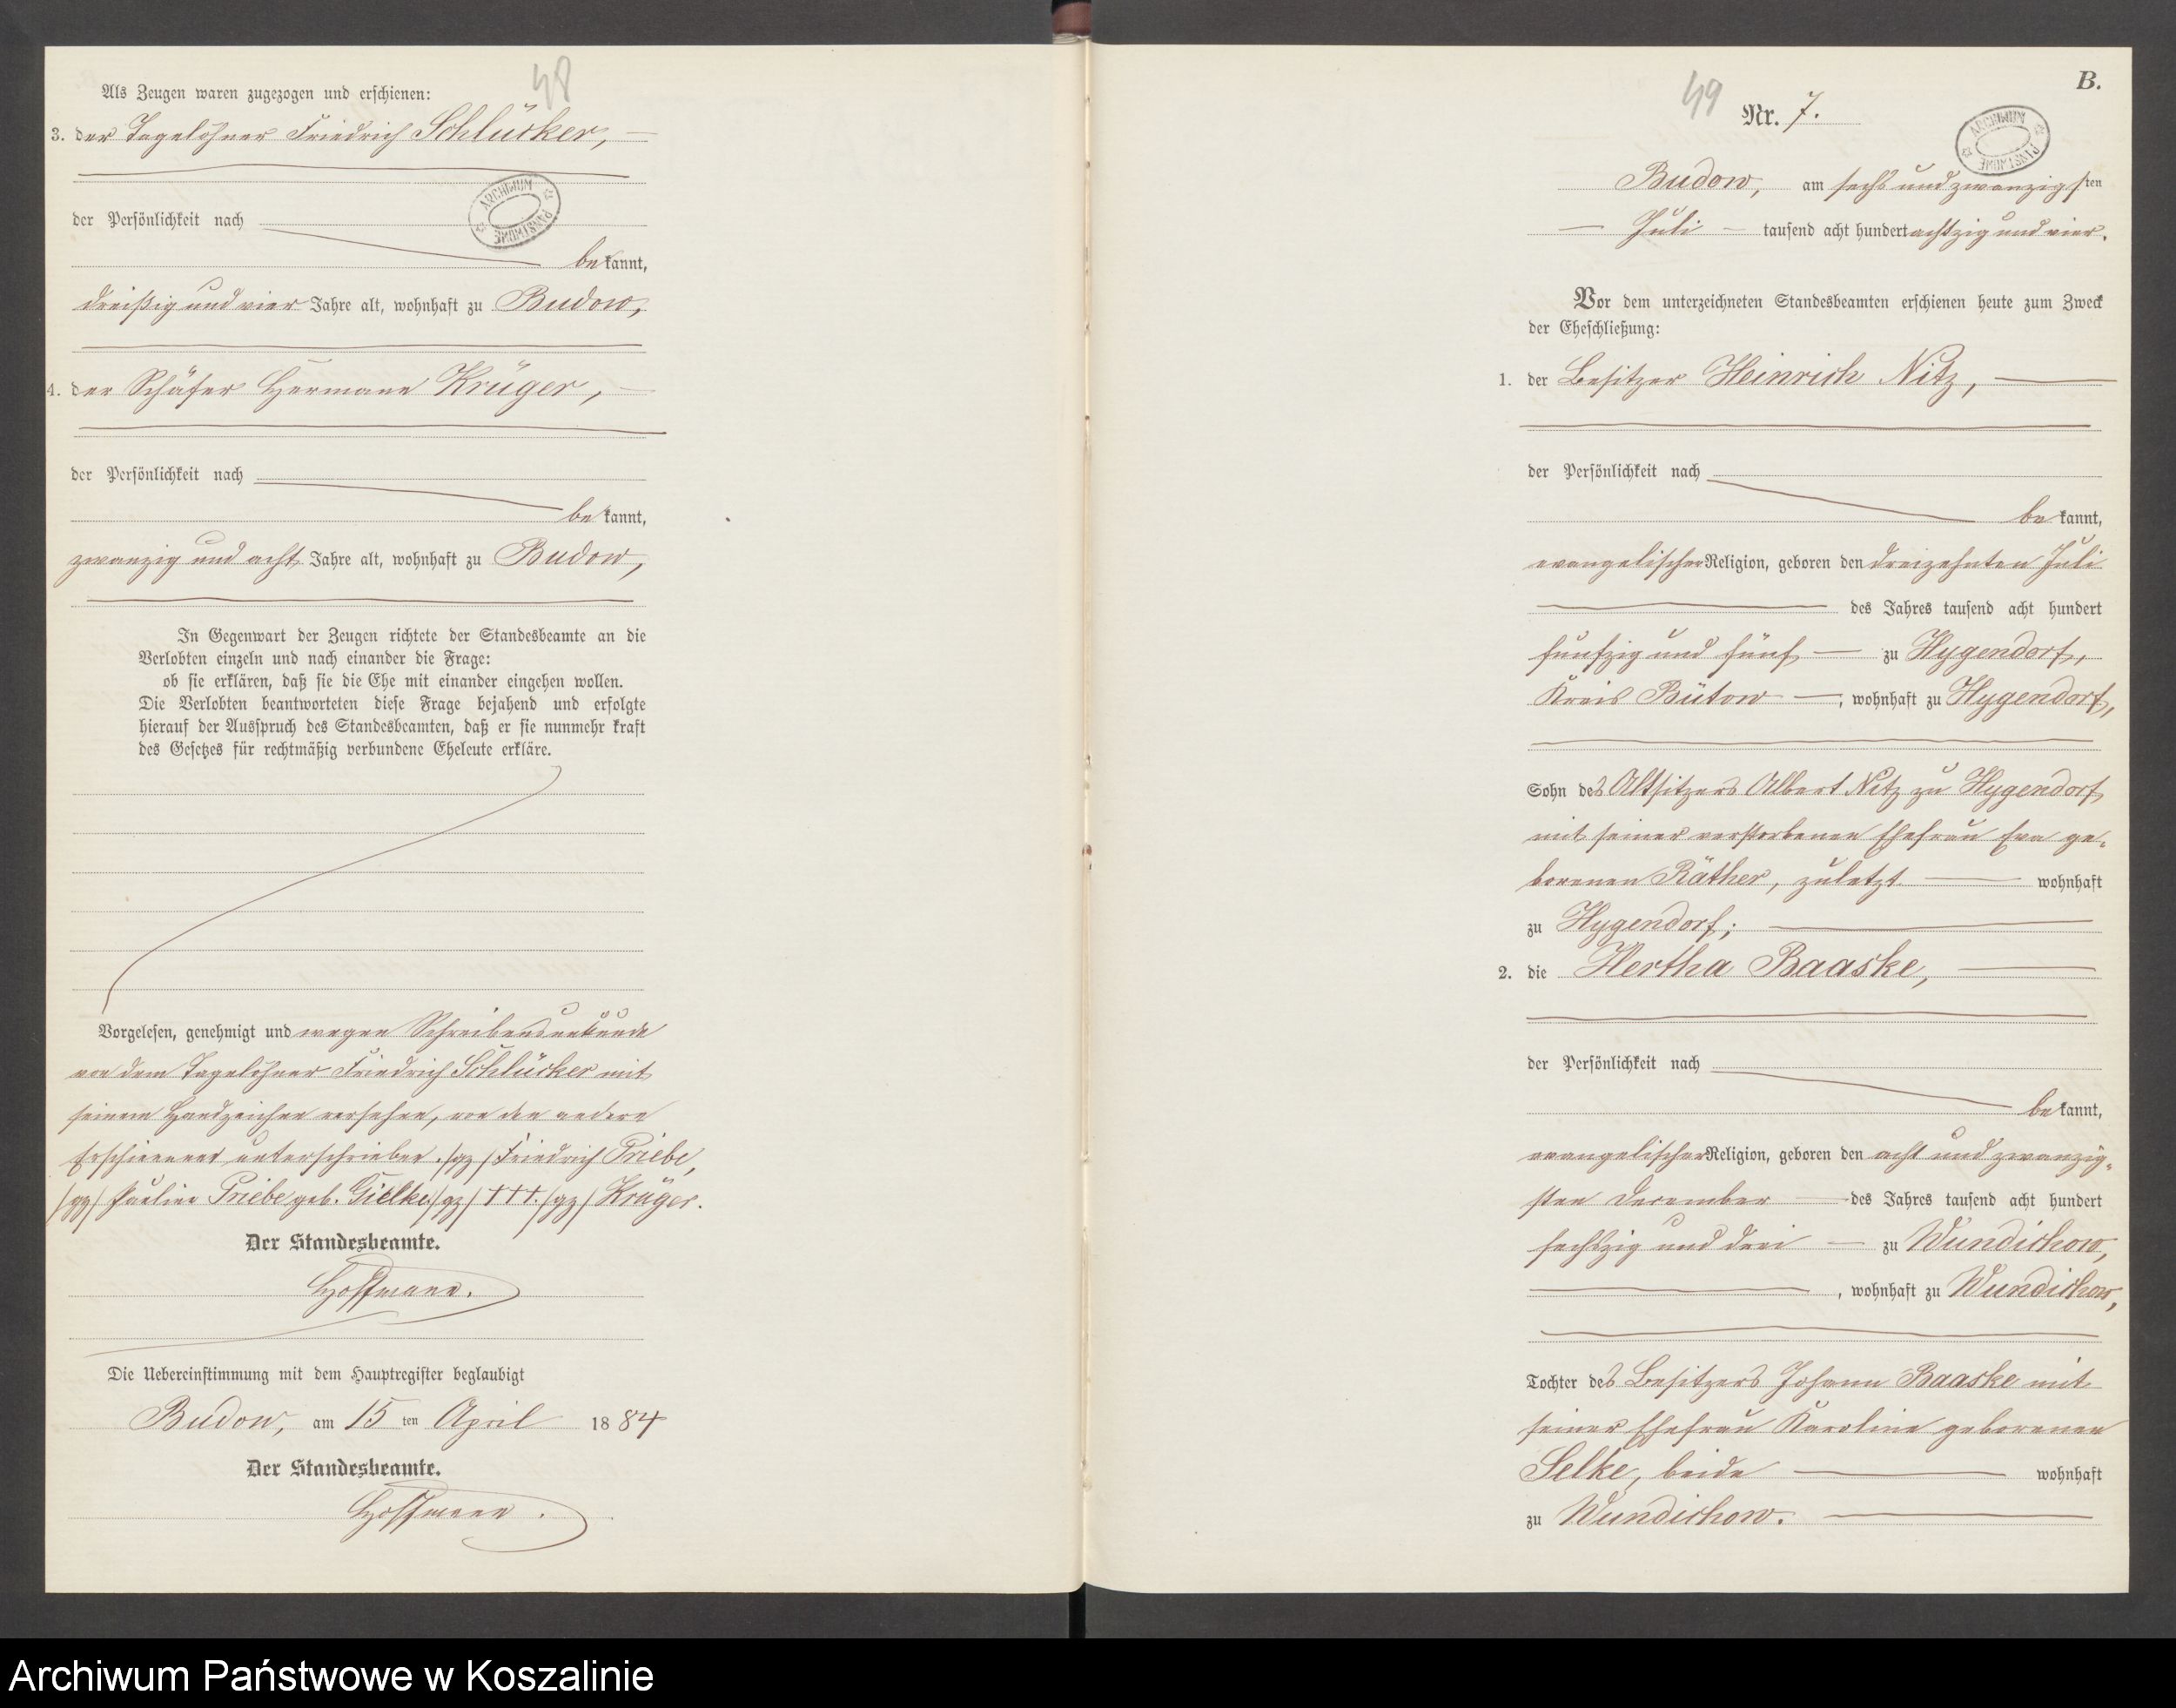 48
Als Zeugen waren zugezogen und erschienen:
3. der Tagelöhner Friedrich Schlücker,
ARCHIWUM PAŃSTWOWE
der Persönlichkeit nach
bekannt,
dreißig und vier Jahre alt, wohnhaft zu Budow,
4. der Schäfer Hermann Krüger,
der Persönlichkeit nach
bekannt,
zwanzig und acht Jahre alt, wohnhaft zu Budow,
In Gegenwart der Zeugen richtete der Standesbeamte an die
Verlobten einzeln und nach einander die Frage:
ob sie erklären, daß sie die Ehe mit einander eingehen wollen.
Die Verlobten beantworteten diese Frage bejahend und erfolgte
hierauf der Ausspruch des Standesbeamten, daß er sie nunmehr kraft
des Gesetzes für rechtmäßig verbundene Eheleute erkläre.
Vorgelesen, genehmigt und wegen Schreibensunkunde
von dem Tagelöhner Friedrich Schlücker mit
seinem Handzeichen versehen, von den andern
Erschienenen unterschrieben. /gz/ Friedrich Priebe,
/gz/ Pauline Priebe geb. Gielke /gz/ +++. /gz/ Krüger.
Der Standesbeamte.
Hoffmann.
Die Uebereinstimmung mit dem Hauptregister beglaubigt
Budow, am 15ten April 1884
Der Standesbeamte.
Hoffmann.
B.
49
Nr. 7.
ARCHIWUM PAŃSTWOWE
Budow, am sechs und zwanzigsten
Juli tausend acht hundert achtzig und vier.
Vor dem unterzeichneten Standesbeamten erschienen heute zum Zweck
der Eheschließung:
1. der Besitzer Heinrich Nitz,
der Persönlichkeit nach
bekannt,
evangelischer Religion, geboren den dreizehnten Juli
des Jahres tausend acht hundert
fünfzig und fünf zu Hygendorf,
Kreis Bütow, wohnhaft zu Hygendorf,
Sohn des Altsitzers Albert Nitz zu Hygendorf
mit seiner verstorbenen Ehefrau Eva ge-
borenen Räther, zuletzt wohnhaft
zu Hygendorf;
2. die Hertha Baaske,
der Persönlichkeit nach
bekannt,
evangelischer Religion, geboren den acht und zwanzig-
sten December des Jahres tausend acht hundert
sechszig und drei zu Wundichow,
, wohnhaft zu Wundichow,
Tochter des Besitzers Johann Baaske mit
seiner Ehefrau Karoline geborenen
Selke, beide wohnhaft
zu Wundichow.
Archiwum Państwowe w Koszalinie